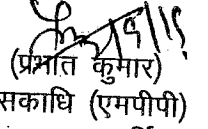 (प्रभात कुमार)
सकाधि (एमपीपी)